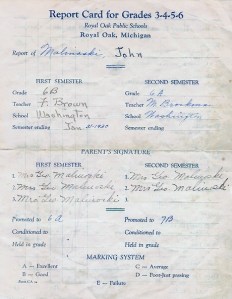 Report Card for Grades 3-4-5-6
Royal Oak Public Schools
Royal Oak, Michigan
Report of Malinoski John
FIRST SEMESTER SECOND SEMESTER
Grade 6B Grade 6A
Teacher F. Brown Teacher M.
School Washington School Washington
Semester ending Jan Semester ending
PARENT'S SIGNATURE
FIRST SEMESTER SECOND SEMESTER
1 Mrs Geo. 1 Mrs Geo.
2 Mrs Geo. 2 Mrs Geo.
3 Mrs Geo. 3
Promoted to 6A Promoted to 7B
Conditioned to Conditioned to
Held in grade Held in grade
MARKING SYSTEM
A — Excellent C — Average
B — Good D — Poor, but passing
E — Failure